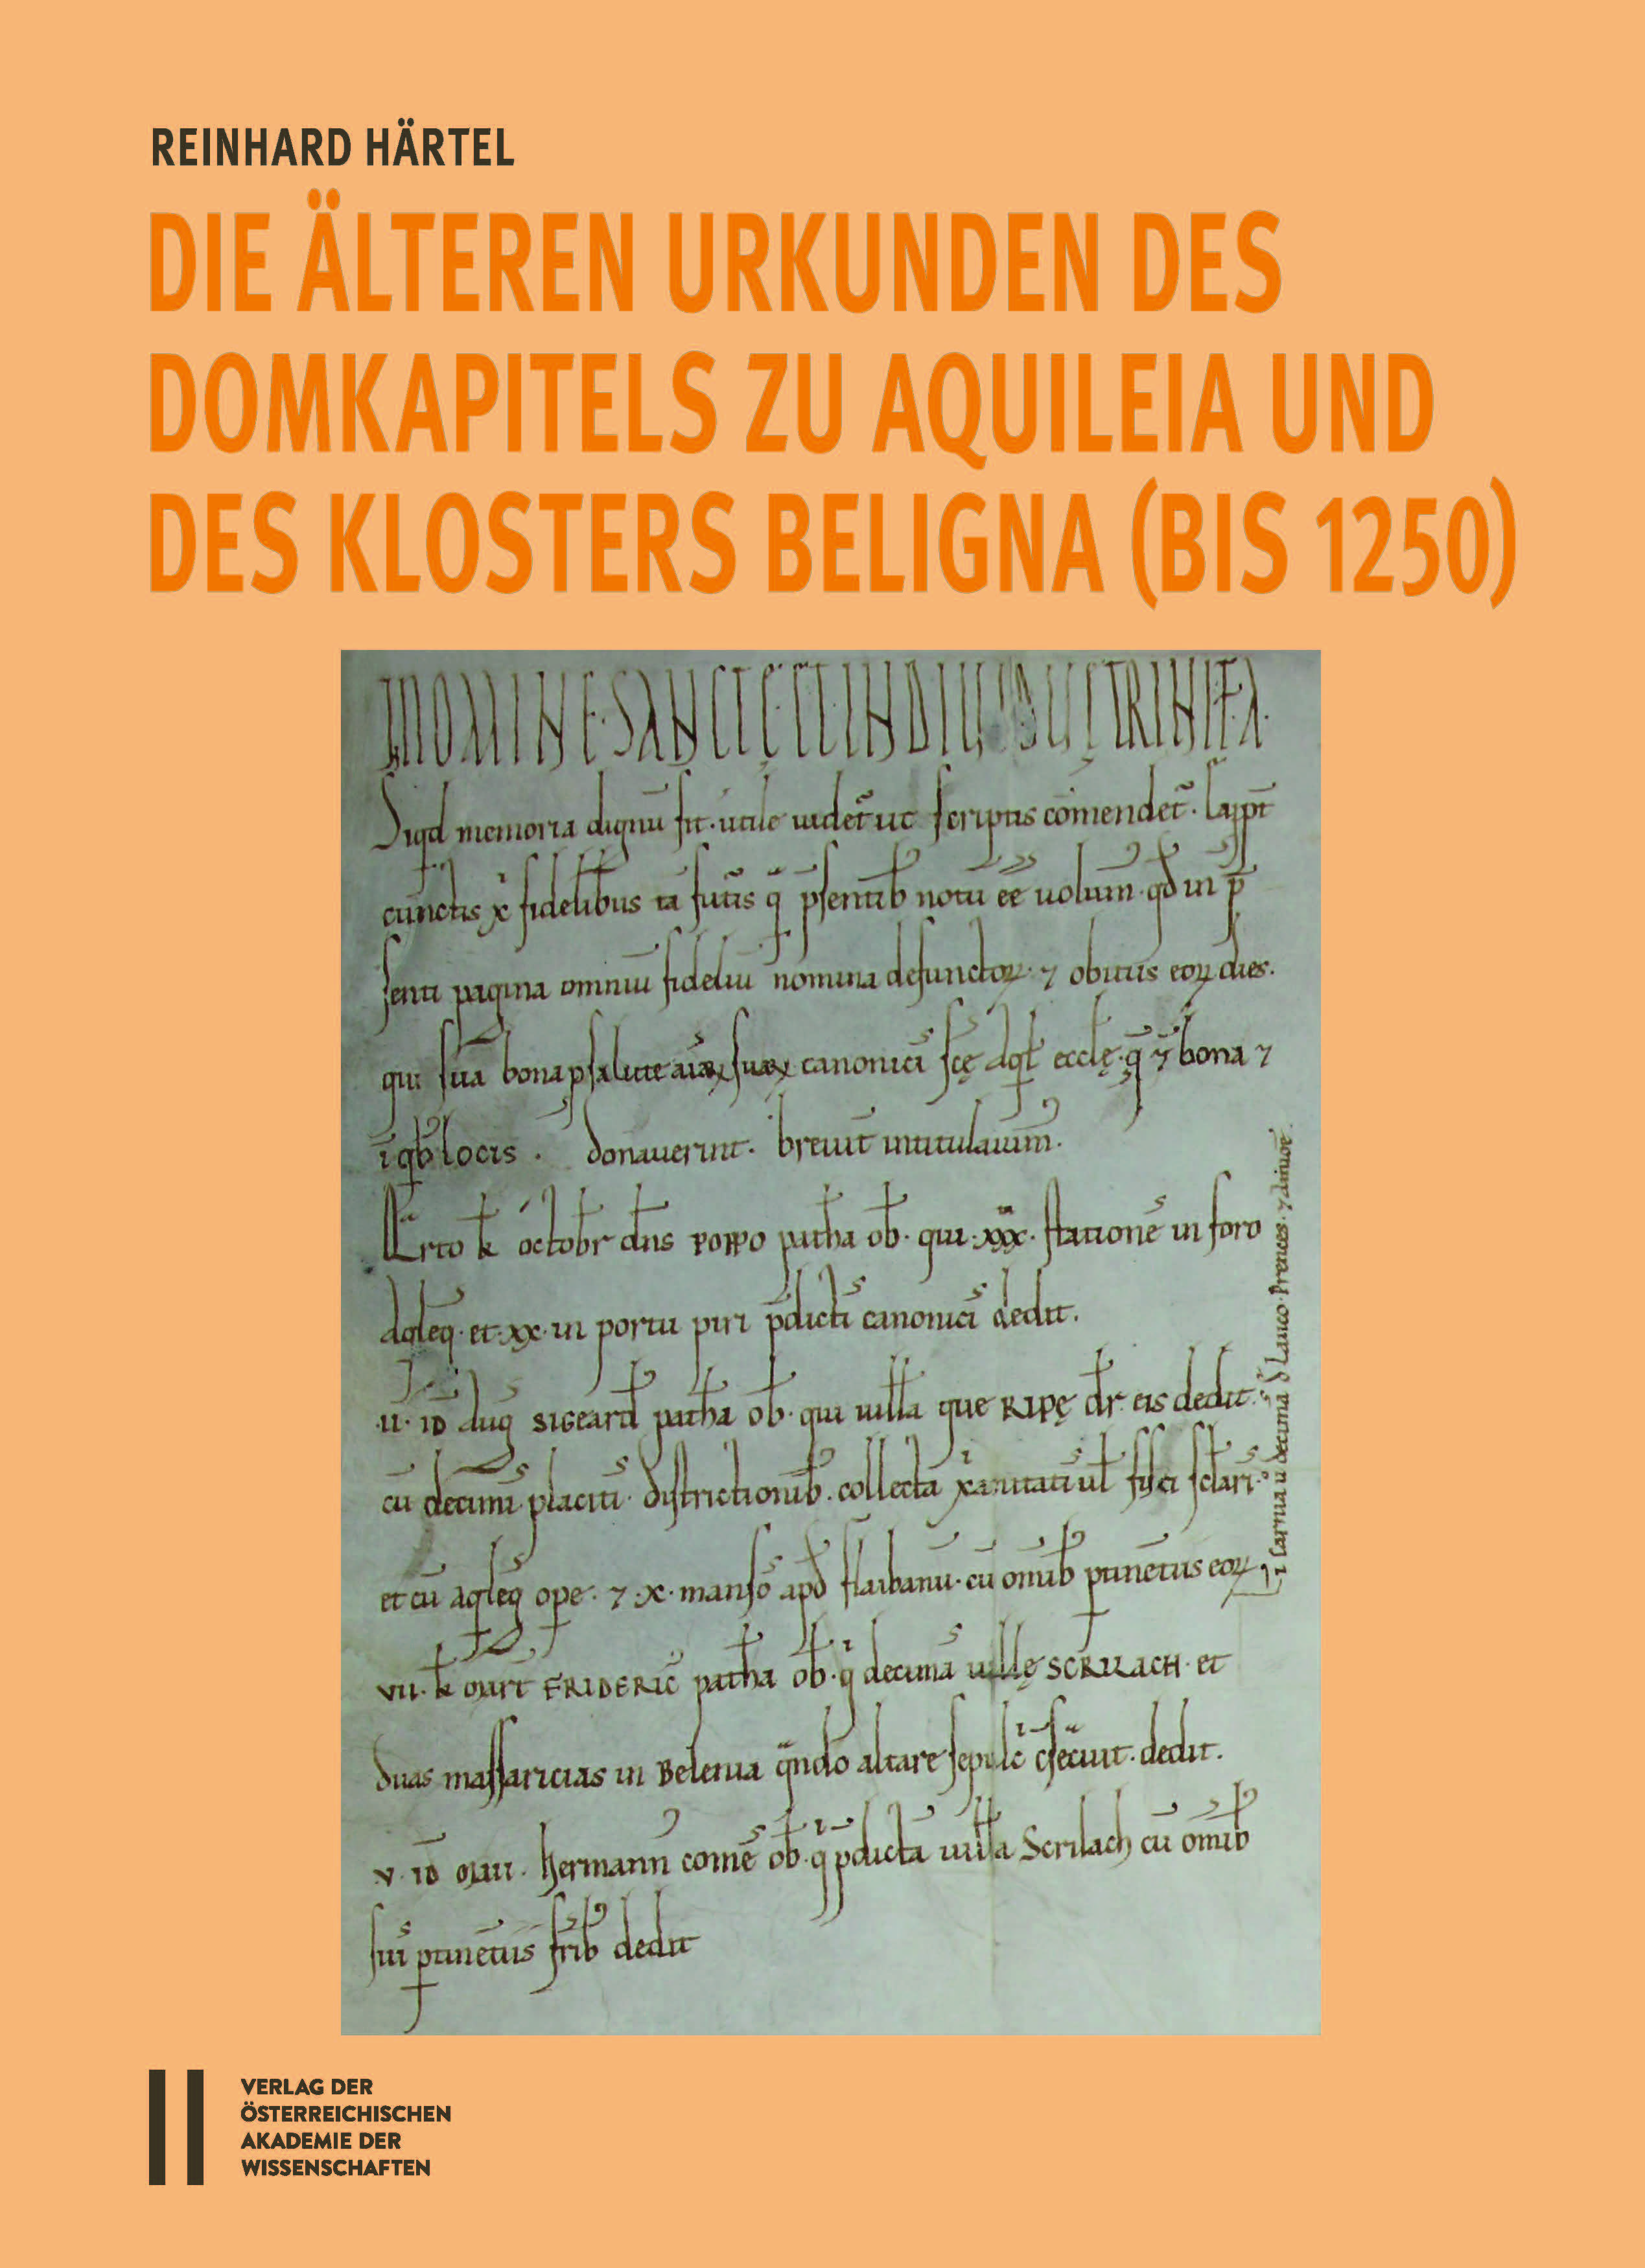 REINHARD HÄRTEL
DIE ÄLTEREN URKUNDEN DES
DOMKAPITELS ZU AQUILEIA UND
DES KLOSTERS BELIGNA (BIS 1250)
memoria dignu sit · utile uidet ut scriptis comendet ·
cunctis fidelibus ta futis psentib notu ee uolum · qd in p
senti pagina omniu fideliu nomina defunctoꝝ · ⁊ obitus eoꝝ dies ·
qui sua bona p salute canonici scę Aql ecclę · bona ⁊
locis · donauerint · breuit intitulauim ·
k octobr dns POPPO patha ob · qui · xxx · statione in foro
Aqleg · et · xx · in portu piri pdicti canonici dedit ·
· ii · iD Aug SIGEARD patha ob · qui uilla que RIPĘ dr eis dedit ·
cu decimi placiti · districtionib · collecta
et cu aqleg ope · ⁊ · x · manso apd flaibanu · cu omib ptinetus eoꝝ
VII · k mart FRIDERIC patha ob · q decima uillę SCRILACH · et
duas massaricias in Belenia qndo altare sepulc csecuit · dedit ·
v · iD mai · hermann come ob · q pdicta uilla Scrilach cu omib
sui ptinetus frib dedit
VERLAG DER
ÖSTERREICHISCHEN
AKADEMIE DER
WISSENSCHAFTEN